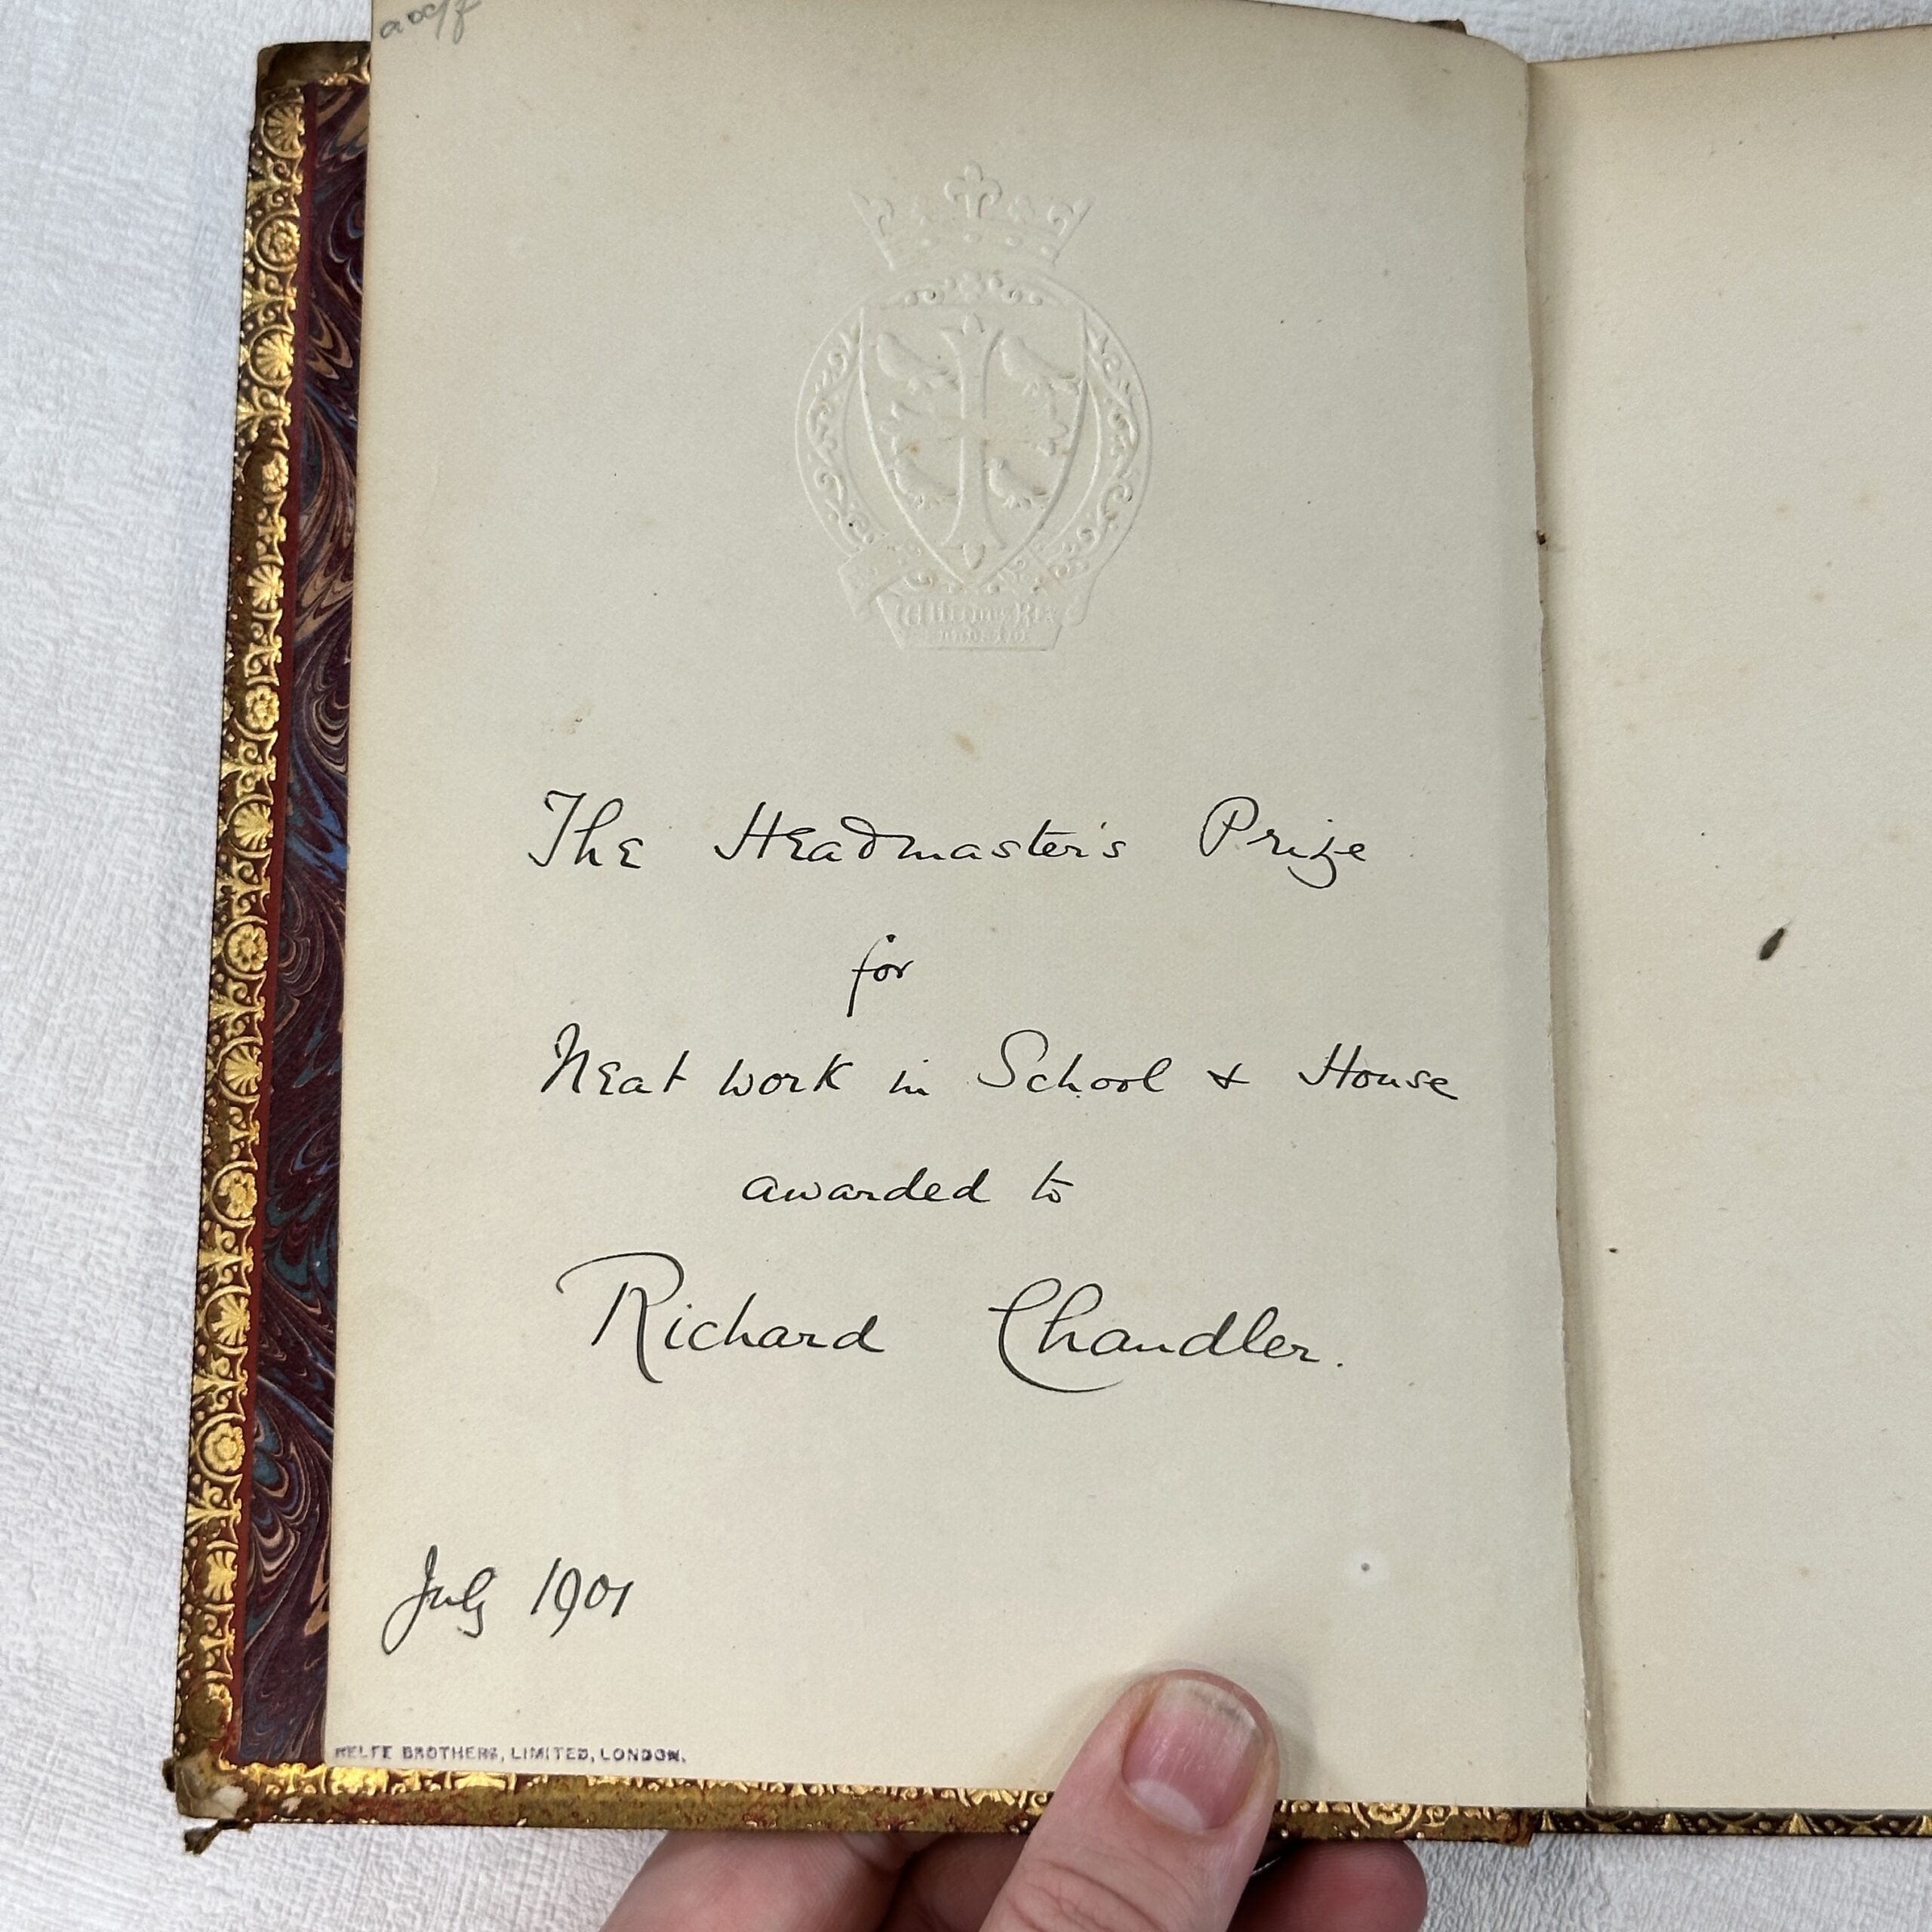 The Headmaster's Prize
for
Neat work in School & House
awarded to
Richard Chandler.
July 1901
RELFE BROTHERS, LIMITED, LONDON.